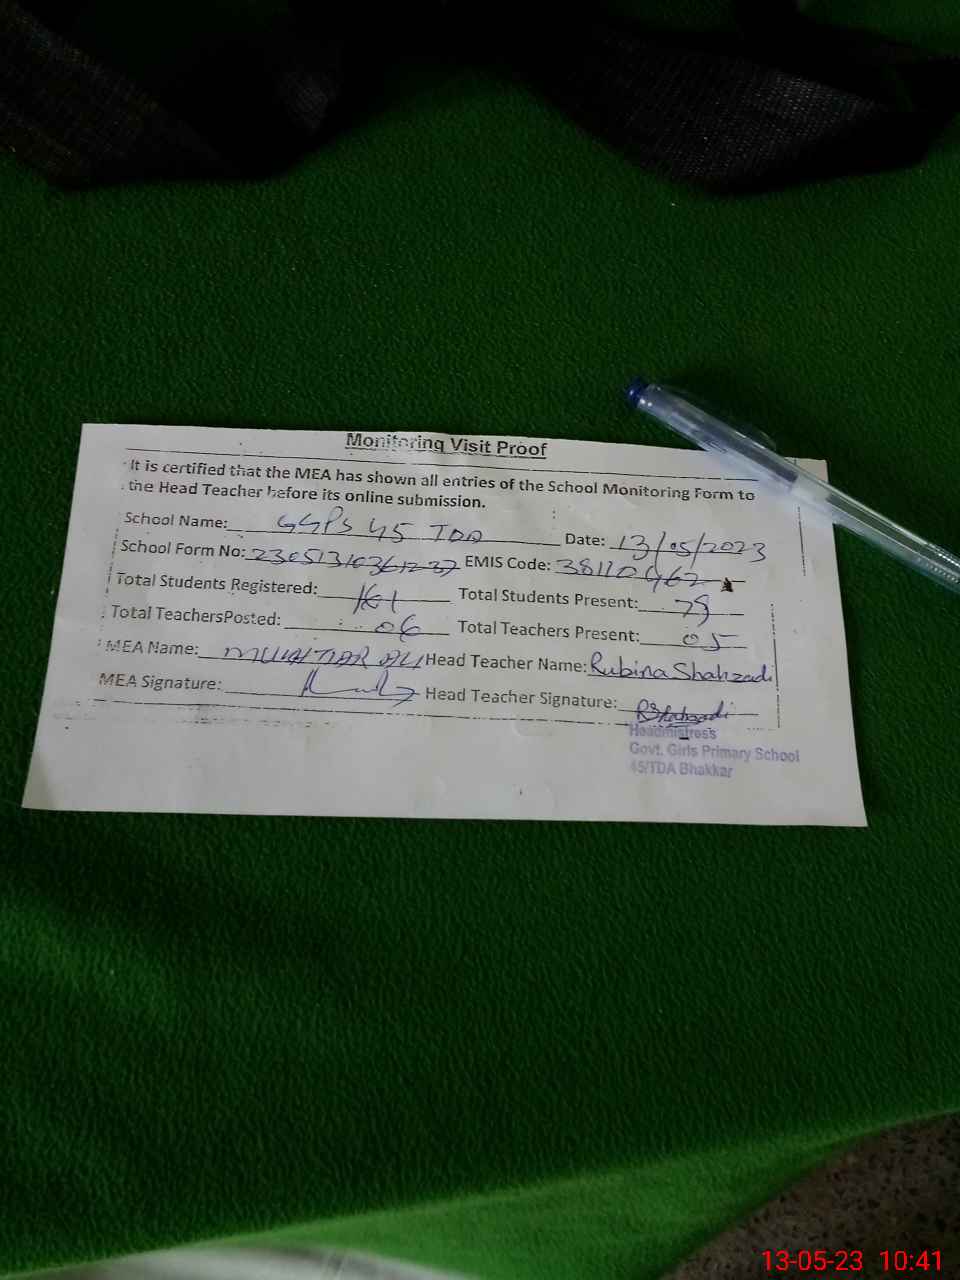 Monitoring Visit Proof
It is certified that the MEA has shown all entries of the School Monitoring Form to
the Head Teacher before its online submission.
School Name: GGPS 45 TDA Date: 13/05/2023
School Form No: EMIS Code: 38110462
Total Students Registered: 161 Total Students Present: 79
Total TeachersPosted: 06 Total Teachers Present: 05
MEA Name: Head Teacher Name: Rubina Shahzadi
MEA Signature: Head Teacher Signature: RShahzadi
Headmistress
Govt. Girls Primary School
45/TDA Bhakkar
13-05-23 10:41